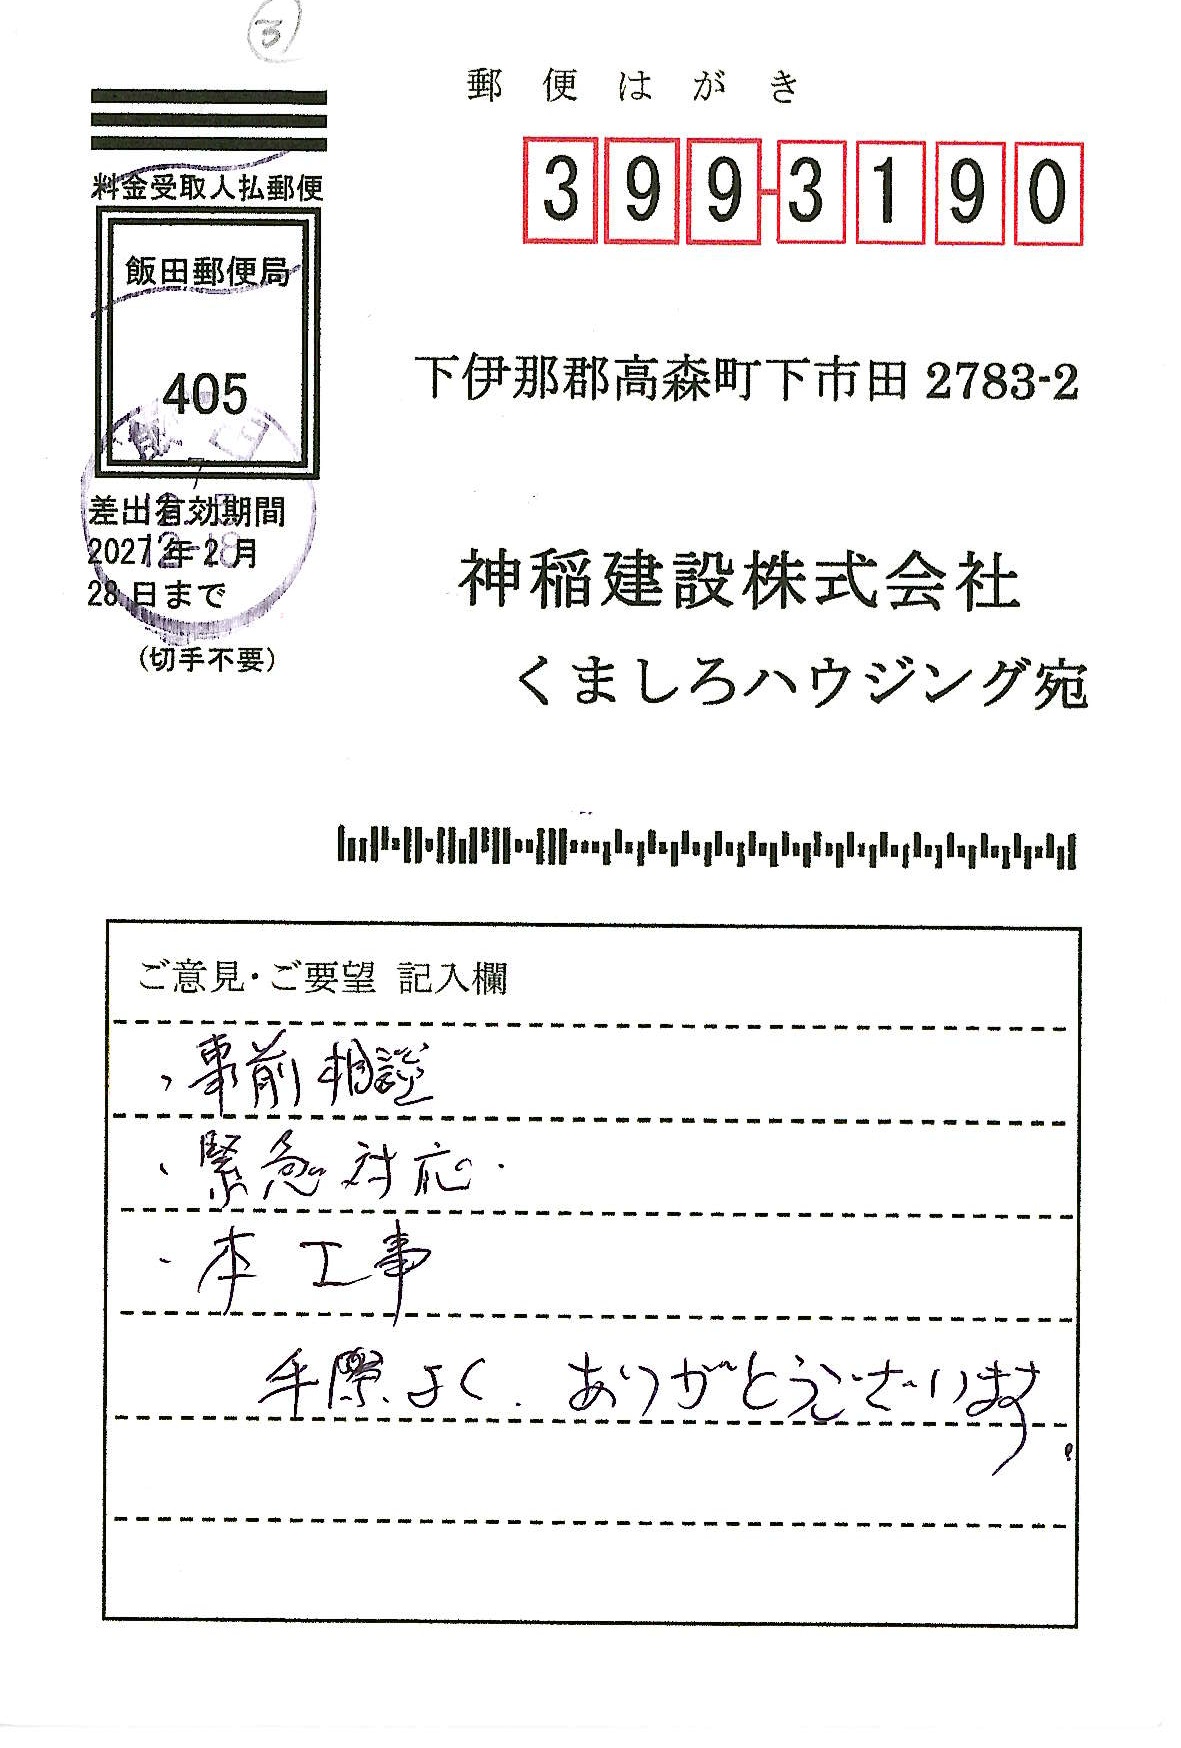 3
郵便はがき
料金受取人払郵便
399-3190
飯田郵便局
405
下伊那郡高森町下市田 2783-2
飯田
12-18
差出有効期間
2027年2月
28日まで
(切手不要)
神稲建設株式会社
くましろハウジング宛
ご意見・ご要望 記入欄
・事前相談
・緊急対応.
・本工事
手際よく.ありがとうございます。